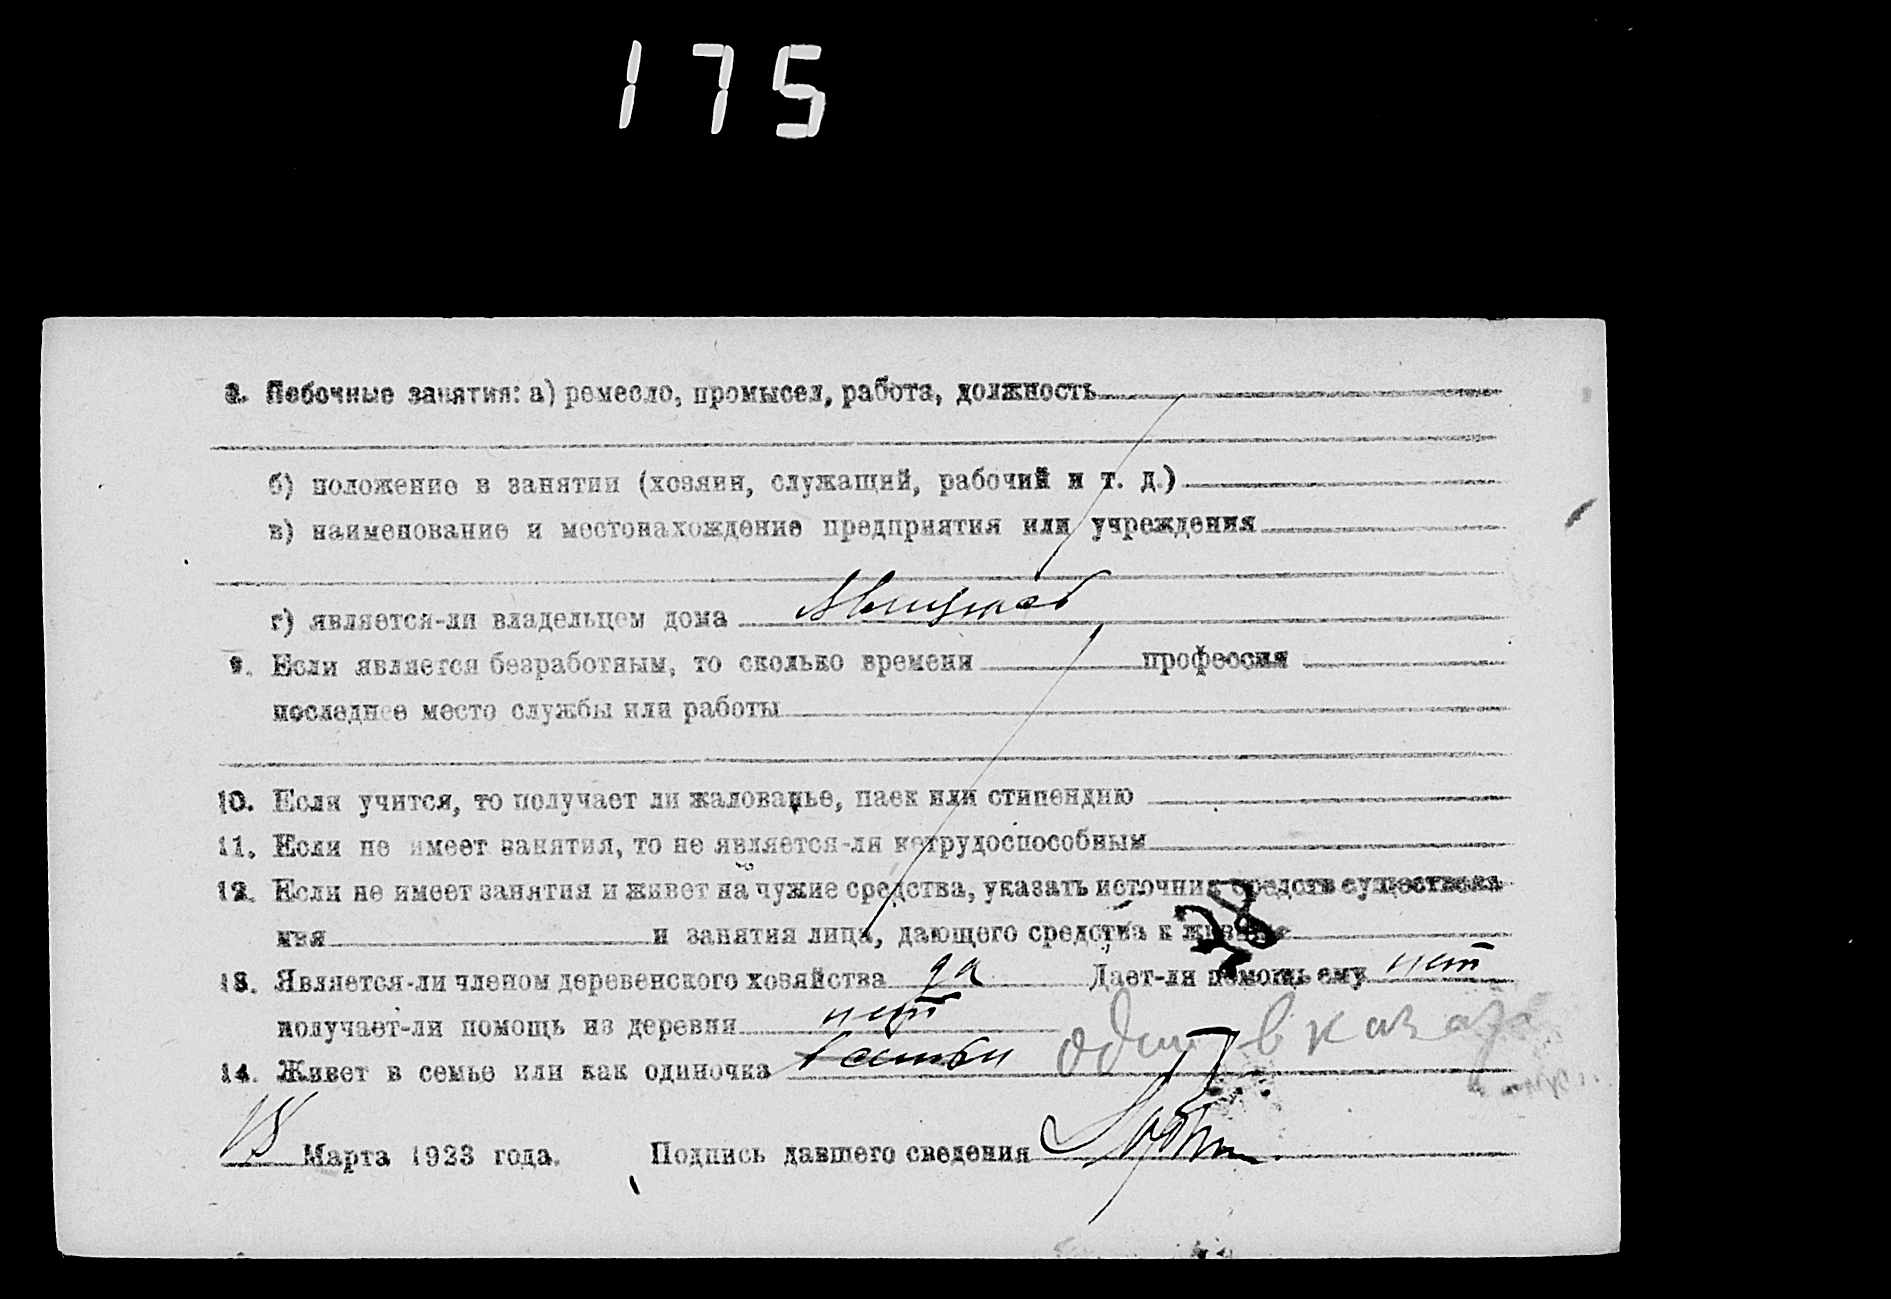 175
8. Побочные занятия: а) ремесло, промысел, работа, должность
б) положение в занятии (хозяин, служащий, рабочий и т. д.)
в) наименование и местонахождение предприятия или учреждения
г) является-ли владельцем дома
9. Если является безработным, то сколько времени профессия
последнее место службы или работы
10. Если учится, то получает ли жалованье, паек или стипендию
11. Если не имеет занятия, то не является-ли нетрудоспособным
12. Если не имеет занятия и живет на чужие средства, указать источник средств существова
ния и занятия лица, дающего средства к жизни
13. Является-ли членом деревенского хозяйства да Дает-ли помощь ему нет
получает-ли помощь из деревни нет
14. Живет в семье или как одиночка в семьи один в
18 Марта 1923 года. Подпись давшего сведения